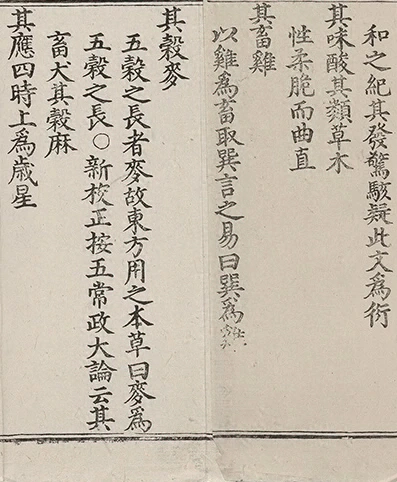 和之紀其發驚駭疑此文為衍
其味酸其類草木
性柔脆而曲直
其畜雞
以雞為畜取巽言之易曰巽為
其穀麥
五穀之長者麥故東方用之本草曰麥為
五穀之長○新校正按五常政大論云其
畜犬其穀麻
其應四時上為歲星